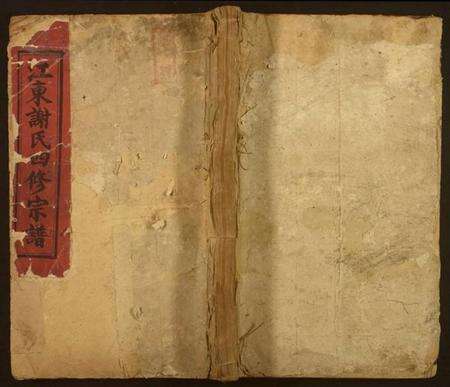 江東謝氏四修宗譜